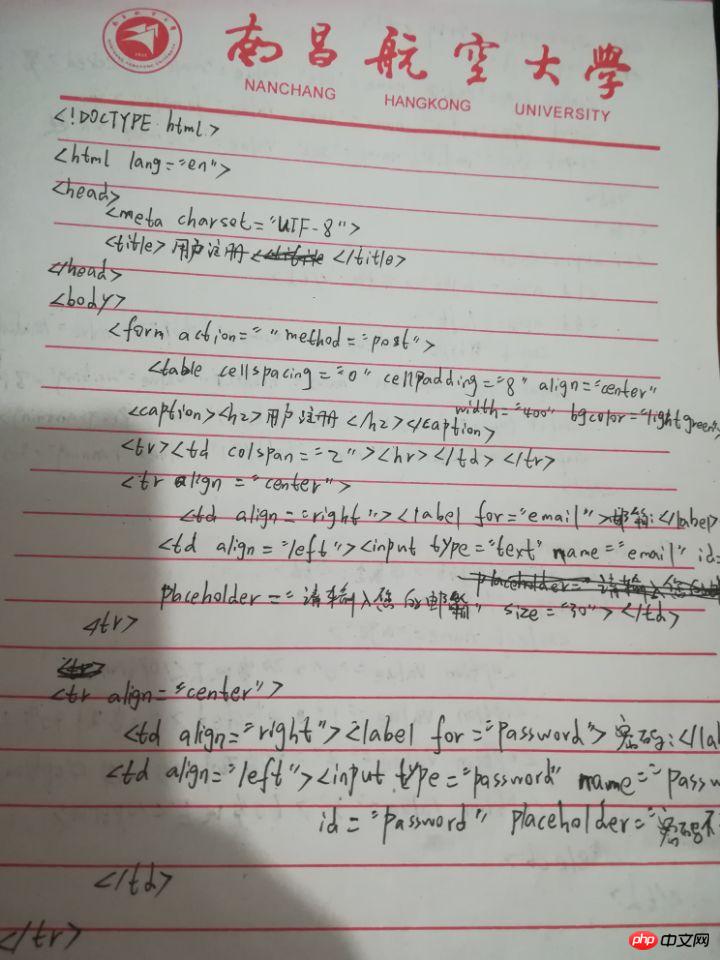 南昌航空大學
NANCHANG HANGKONG UNIVERSITY
<!DOCTYPE html>
<html lang="en">
<head>
<meta charset="UTF-8">
<title>用户注册 </title>
</head>
<body>
<form action=" " method="post">
<table cellspacing="0" cellpadding="8" align="center"
width="400" bgcolor="lightgreen">
<caption><h2>用户注册</h2></caption>
<tr><td colspan="2"><hr></td></tr>
<tr align="center">
<td align="right"><label for="email">邮箱:</label>
<td align="left"><input type="text" name="email" id=
placeholder="请输入您的邮箱" size="30"></td>
</tr>
<tr align="center">
<td align="right"><label for="password">密码:</la
<td align="left"><input type="password" name="passw
id="password" placeholder="密码不
</td>
</tr>
php 中文网